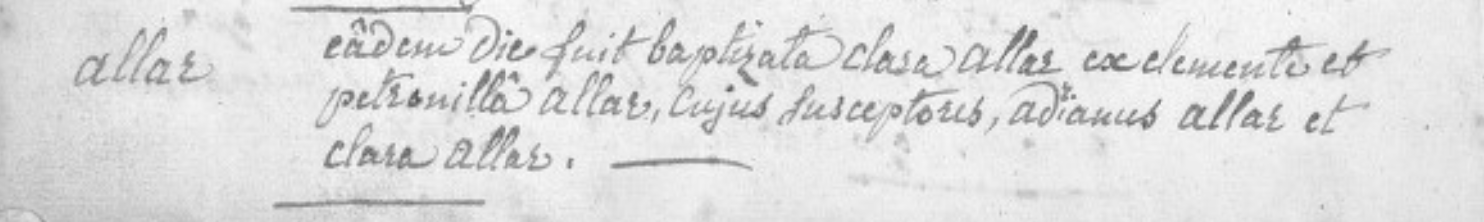 allar
eâdem die fuit baptizata clara allar ex clemente et
petronillâ allar, cujus susceptores, adrianus allar et
clara allar.